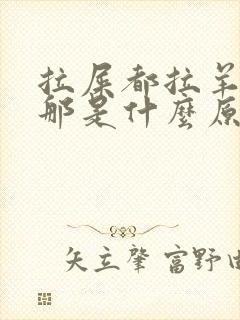 拉屎都拉羊
那是什麼原
矢立肇 富野由